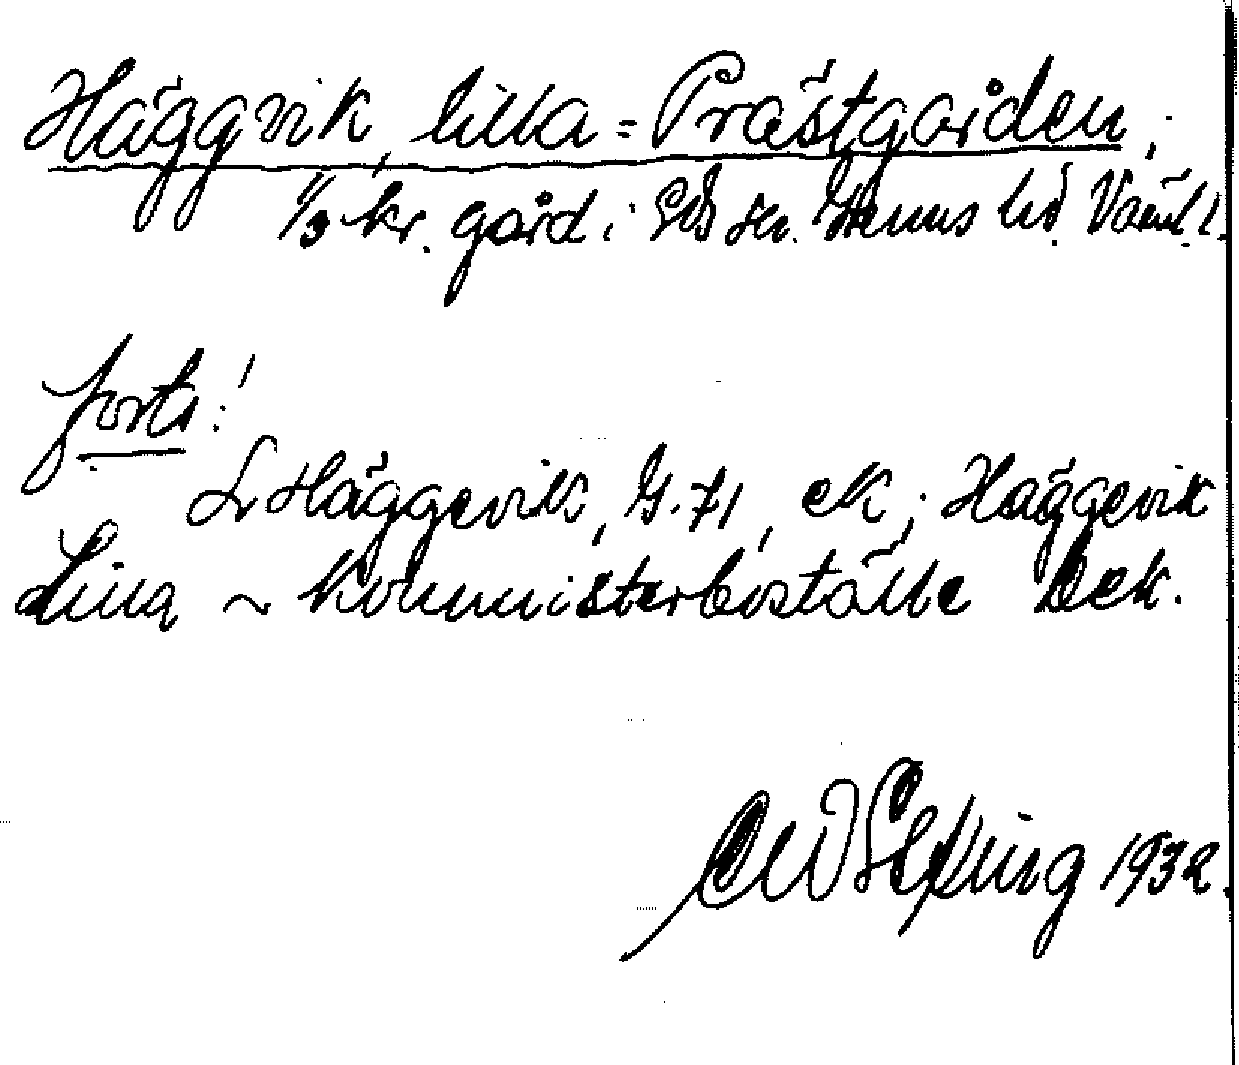 Häggvik, lilla = Prästgården;
1/3 kr. gård i sn. hd. l.
forts:!
L Häggevik, G. 71, ek; Häggevik
Lilla ~ Komministerboställe Dek.
1932.